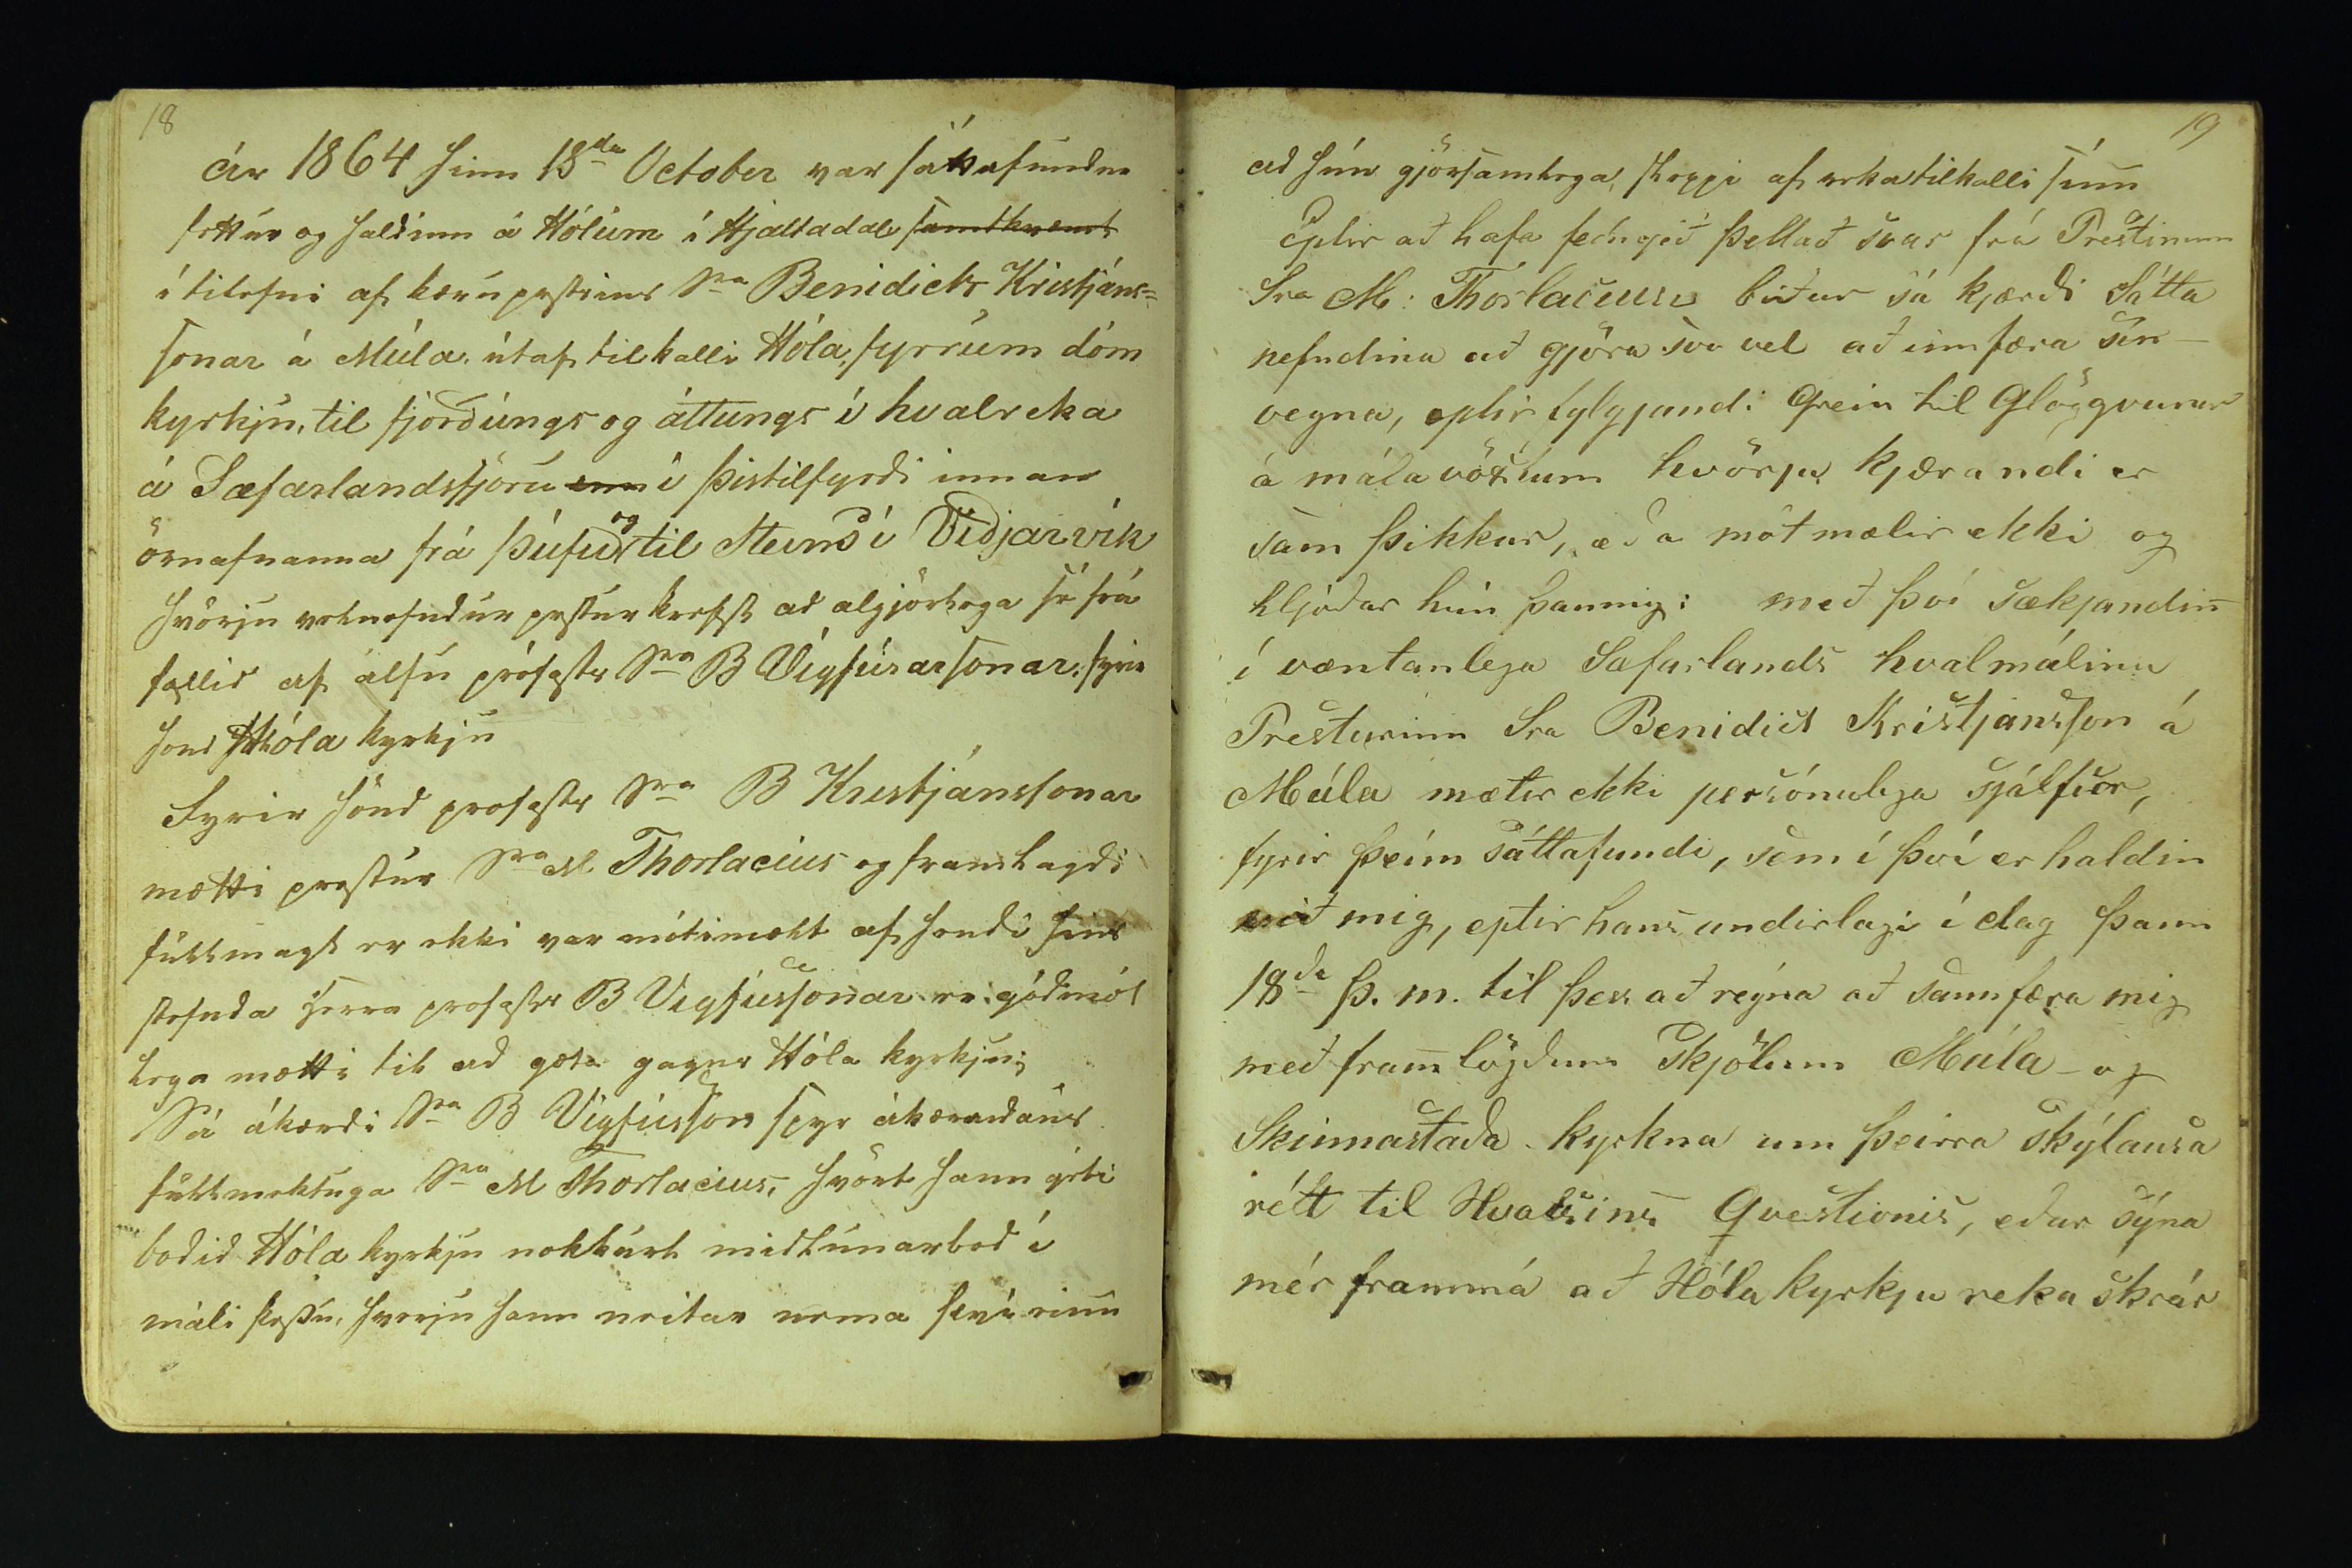 18
ár 1864 hinn 18da October var sáttafundur
settur og haldinn á Hólum í Hjaltadal samkvæmt
í tilefni af kæru prestsins Sra Benidicts Kristjáns=
sonar á Múla, útaf tilkalli Hóla, fyrrum dóm
kyrkju, til fjórðúngs og áttungs í hvalreka
á Sæfarlandsfjöru í Þistilfyrði innan
örnafnanna frá Þúfu og til Steins í Viðjarvík
hvörju velnefndur prestur krefst ad algjörlega sé frá
fallid af álfu prófasts Sra B Vigfúsarsonar, fyrir
hönd Hóla kyrkju
Fyrir hönd prófasts Sra B Kristjánssonar
mætti prestur Sra M Thorlacius og framlagdi
fullmagt er ekki var mótimælt af hendi hins
stefnda herra prófasts B Vigfússonar er gódmót
lega mætti til ad gæta gagns Hóla kyrkju;
Sá ákærdi Sra B Vigfússon spyr ákærandans
fullmektuga Sra M Thorlacius, hvört hann géti
bodid Hóla kyrkju nokkurt midlunarbod í
máli þessu, hverju hann neitar nema því einu
19
ad hún gjörsamlega sleppi af reka tilkalli sínu
Eptir að hafa fengið þettað svar frá Prestinum
Sra M: Thorlacius biður sá kjærði Sátta
nefndina að gjöra svo vel að innfæra sín-
vegna, eptirfylgjandi Grein til Glöggvunar
á málavöxtum hvörju kjærandi er
samþikkur, eða mótmælir ekki og
hljóðar hún þannig: með því sækjandin
í væntanlega Sæfarlands hvalmálinu
Presturinn Sra Benidict Kristjansson á
Múla mætir ekki persónulega sjálfur,
fyrir þeim sáttafundi, sem í því er haldin
við mig, eptir hans undirlagi í dag þann
18da þ. m. til þess að reyna að sannfæra mig
með framlögðum Skjölum Múla- og
Skinnastaða- kyrkna um þeirra skýlausa
rétt til Hvalsins Qvestionis, eður sýna
mér frammá að Hóla kyrkju reka skrár